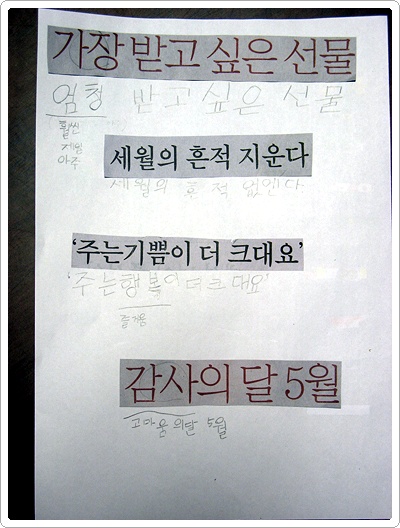 가장 받고 싶은 선물
엄청 받고 싶은 선물
훨씬
제일
아주
세월의 흔적 지운다
세월의 흔적 없엔다
'주는기쁨이 더 크대요'
'주는행복이더크대요'
즐거움
감사의 달 5월
고마움의달 5월